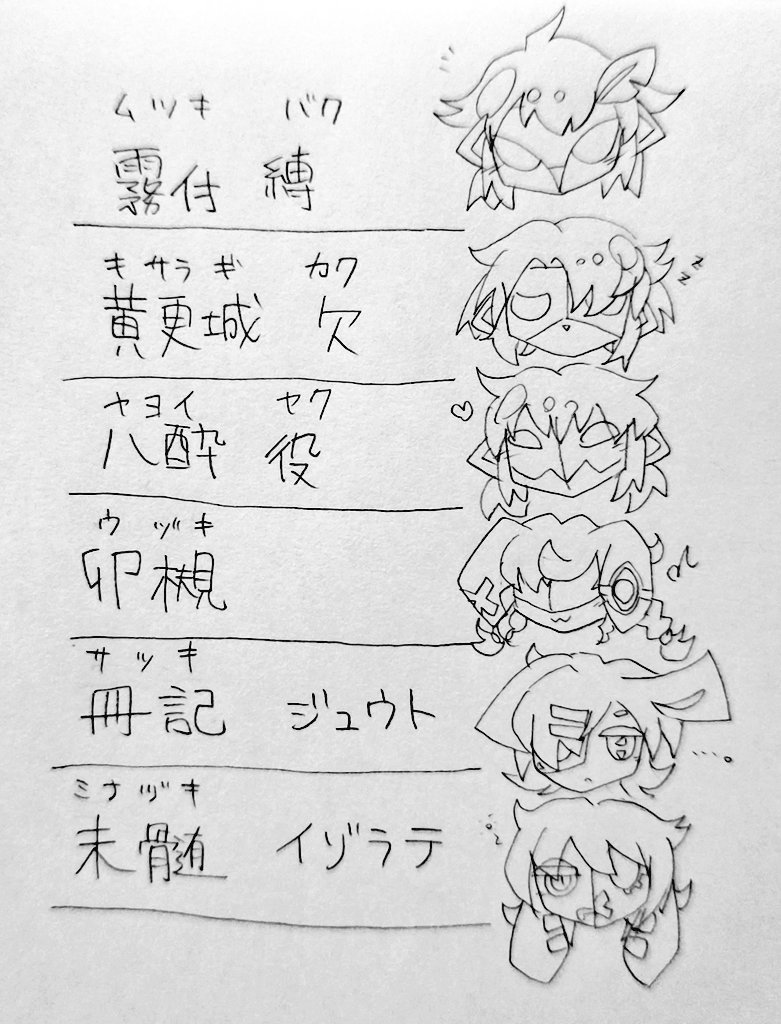 ムツキ バク
霧付 縛
キサラギ カク
黄更城 欠
ヤヨイ ヤク
八酔 役
ウヅキ
卯槻
サツキ
冊記 ジュウト
ミナヅキ
未髄 イゾラテ
zz